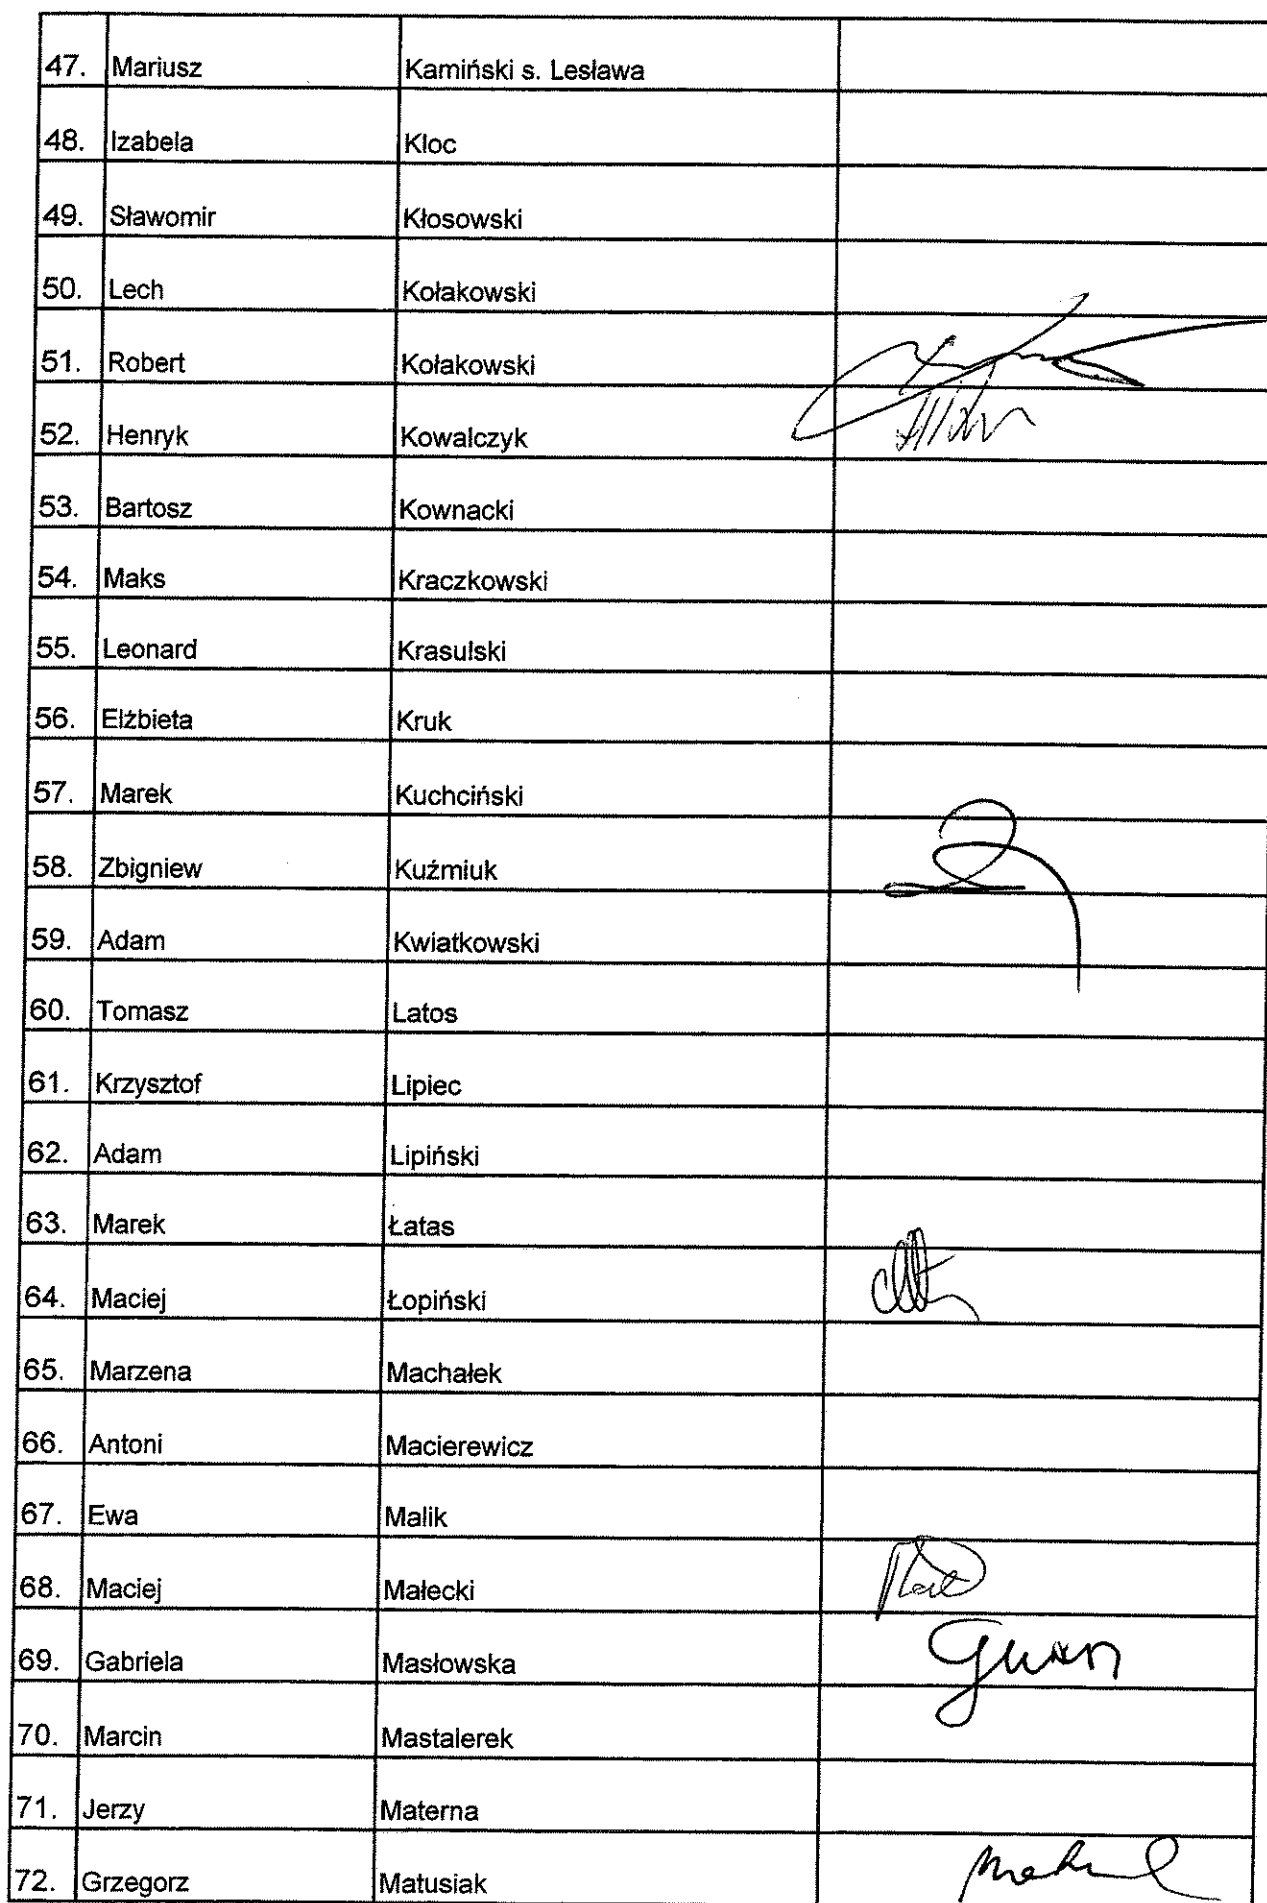 47. Mariusz Kamiński s. Lesława
48. Izabela Kloc
49. Sławomir Kłosowski
50. Lech Kołakowski
51. Robert Kołakowski
52. Henryk Kowalczyk
53. Bartosz Kownacki
54. Maks Kraczkowski
55. Leonard Krasulski
56. Elżbieta Kruk
57. Marek Kuchciński
58. Zbigniew Kuźmiuk
59. Adam Kwiatkowski
60. Tomasz Latos
61. Krzysztof Lipiec
62. Adam Lipiński
63. Marek Łatas
64. Maciej Łopiński
65. Marzena Machałek
66. Antoni Macierewicz
67. Ewa Malik
68. Maciej Małecki
69. Gabriela Masłowska
70. Marcin Mastalerek
71. Jerzy Materna
72. Grzegorz Matusiak